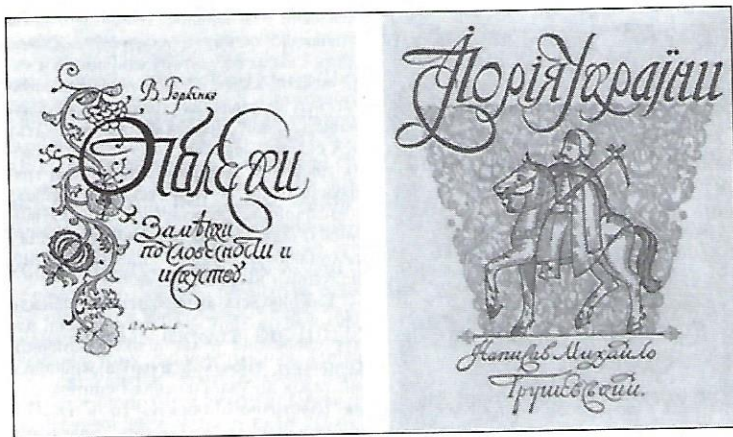 В. Горленко
Отблески
Замѣтки
по словесности и
искуству.
Історія України
Написав Михайло
Грушевський.